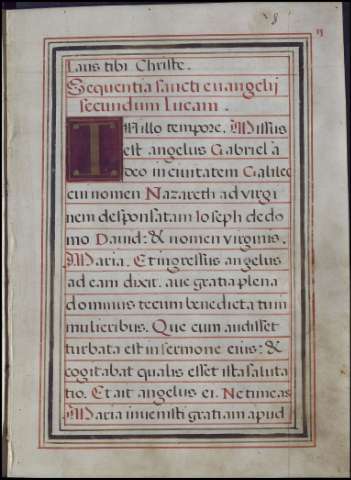 Laus tibi Christe.
Sequentia sancti euangelij
secundum Lucam.
IN illo tempore. Missus
est angelus Gabriel a
deo in ciuitatem Galileę
cui nomen Nazareth ad virgi
nem desponsatam Ioseph de do
mo Dauid: & nomen virginis.
Maria. Et ingressus angelus
ad eam dixit. aue gratia plena
dominus tecum benedicta tu in
mulieribus. Que cum audisset
turbata est in sermone eius: &
cogitabat qualis esset ista saluta
tio. Et ait angelus ei. Ne timeas
Maria inuenisti gratiam apud